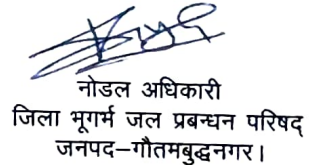 नोडल अधिकारी
जिला भूगर्भ जल प्रबन्धन परिषद्
जनपद–गौतमबुद्धनगर।